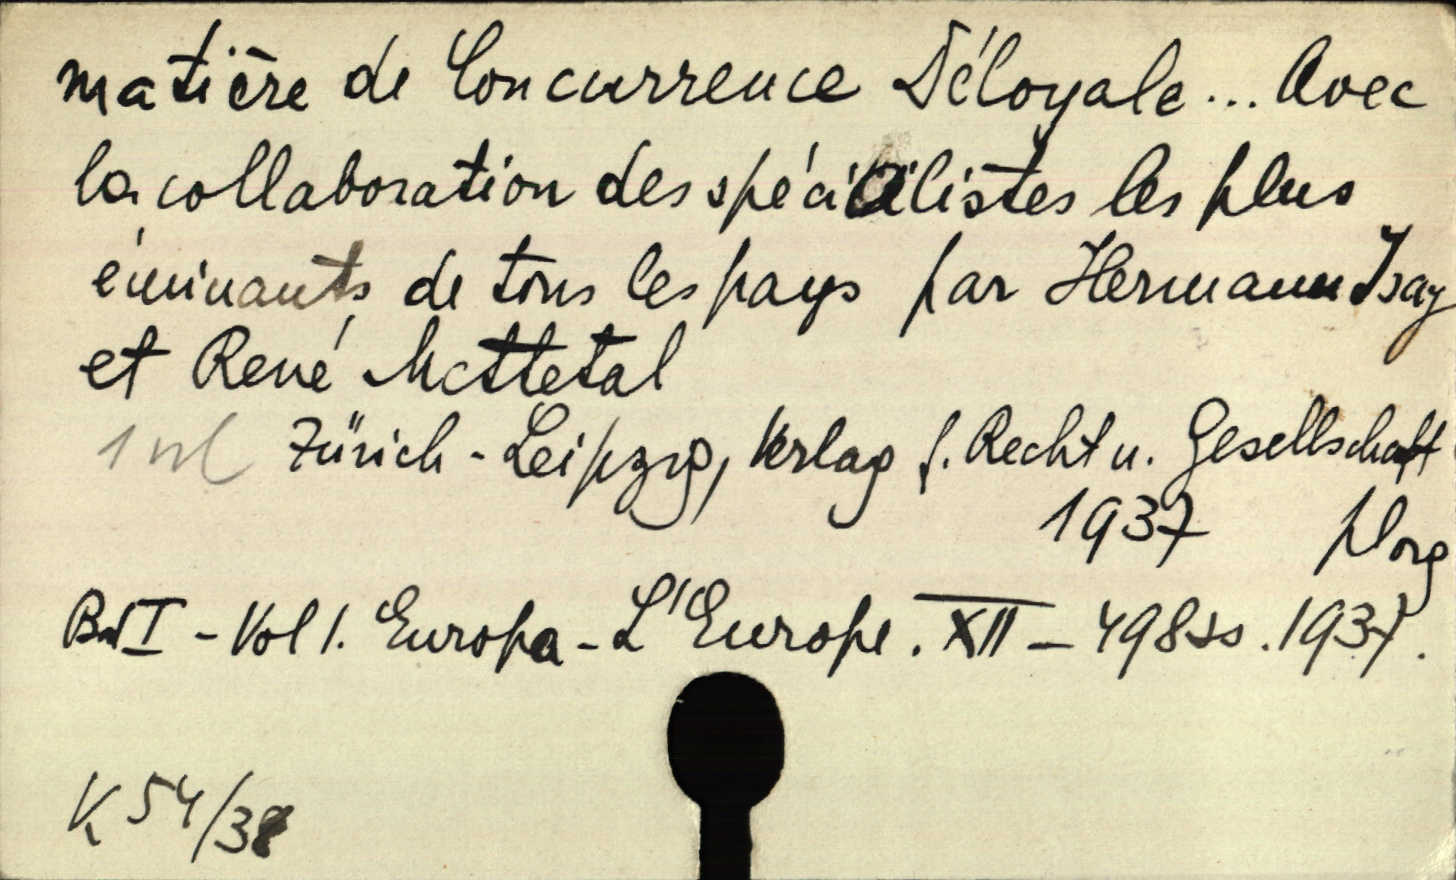 matière de Concurrence Déloyale... Avec
la collaboration des spécialistes les plus
éminants de tous les pays par Hermann Isay
et René Mettetal
1 vol Zürich - Leipzig, Verlag f. Recht u. Gesellschaft
1937 plong
Bd I - Vol 1. Europa - L'Europe. XII - 498 ss. 1937.
K 54/38